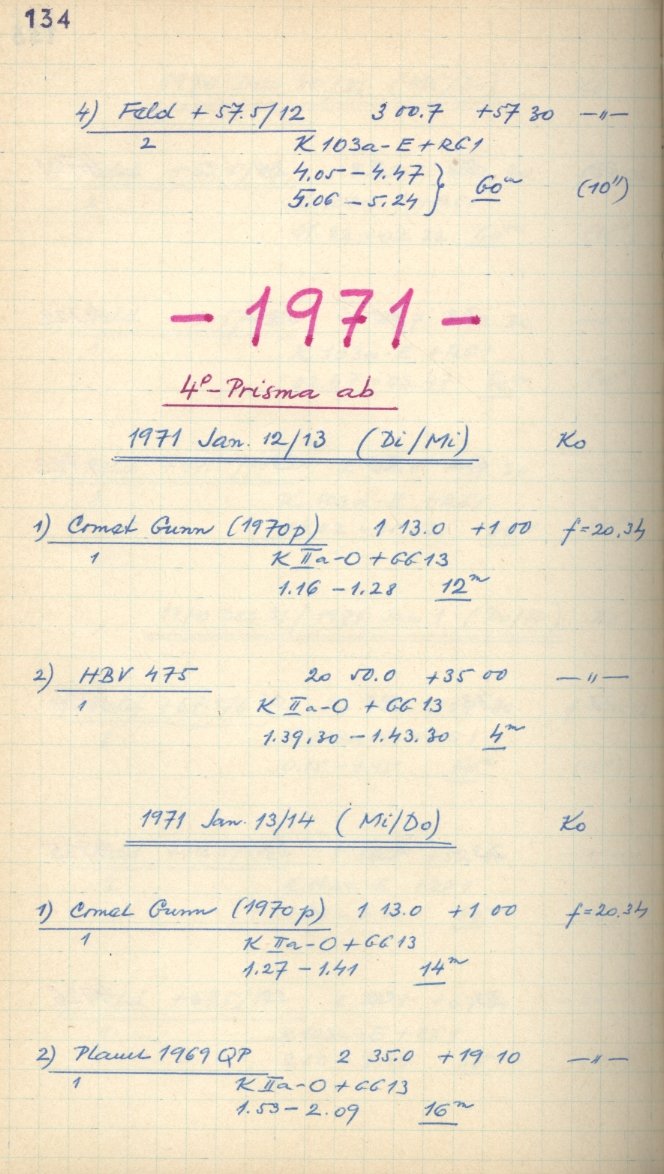 134
4) Feld + 57.5/12 3 00.7 +57 30 —〃—
2 K 103a-E+RG1
4.05 – 4.47
5.06 – 5.24 } 60ᵐ (10")
– 1971 –
4°-Prisma ab
1971 Jan. 12/13 (Di/Mi) Ko
1) Comet Gunn (1970p) 1 13.0 +1 00 f=20.34
1 K IIa-O + GG13
1.16 – 1.28 12ᵐ
2) HBV 475 20 50.0 +35 00 —〃—
1 K IIa-O + GG 13
1.39.30 – 1.43.30 4ᵐ
1971 Jan. 13/14 (Mi/Do) Ko
1) Comet Gunn (1970p) 1 13.0 +1 00 f=20.34
1 K IIa-O + GG13
1.27 – 1.41 14ᵐ
2) Planet 1969 QP 2 35.0 +19 10 —〃—
1 K IIa-O + GG13
1.53 – 2.09 16ᵐ